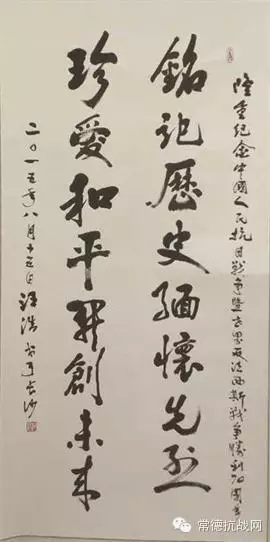 隆重纪念中國人民抗日戰争暨世界反法西斯戰争勝利70周年
銘記歷史緬懷先烈
珍愛和平開創未来
二〇一五年八月十五日汪浩书于长沙
常德抗战网